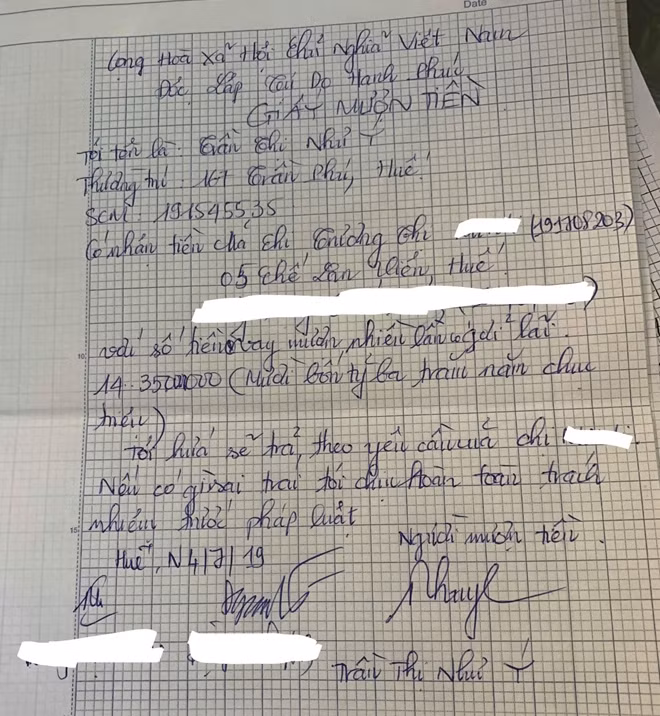 Date
Cộng Hoà Xã Hội Chủ Nghĩa Việt Nam
Độc Lập Tự Do Hạnh Phúc
GIẤY MƯỢN TIỀN
Tôi tên là: Trần Thị Như Ý
Thường trú: 167 Trần Phú, Huế.
SCM: 191545535
Có nhận tiền của chị Trương Thị (191108203)
05 Chế Lan Viên, Huế.
với số tiền vay mượn nhiều lần cả gởi lãi.
10
14.350000000 (Mười bốn tỷ ba trăm năm chục
triệu)
Tôi hứa sẽ trả theo yêu cầu của chị
Nếu có gì sai trái tôi chịu hoàn toàn trách
nhiệm trước pháp luật
15
Người mượn tiền.
Huế, N4/7/19
Trần Thị Như Ý